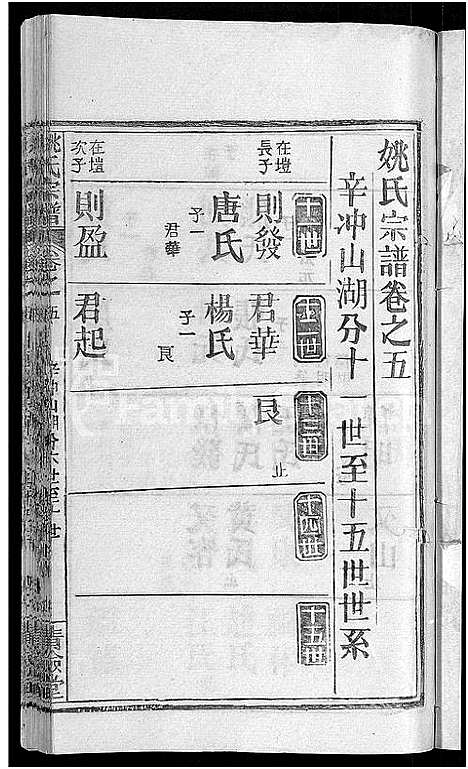 姚氏宗譜卷之五
辛冲山湖分十一世至十五世世系
十一世
十二世
十三世
十四世
十五世
在塏長子
則發
唐氏
子一
君華
君華
楊氏
子一
艮
艮
止
在塏次子
則盈
君起
姚氏宗譜
卷之五